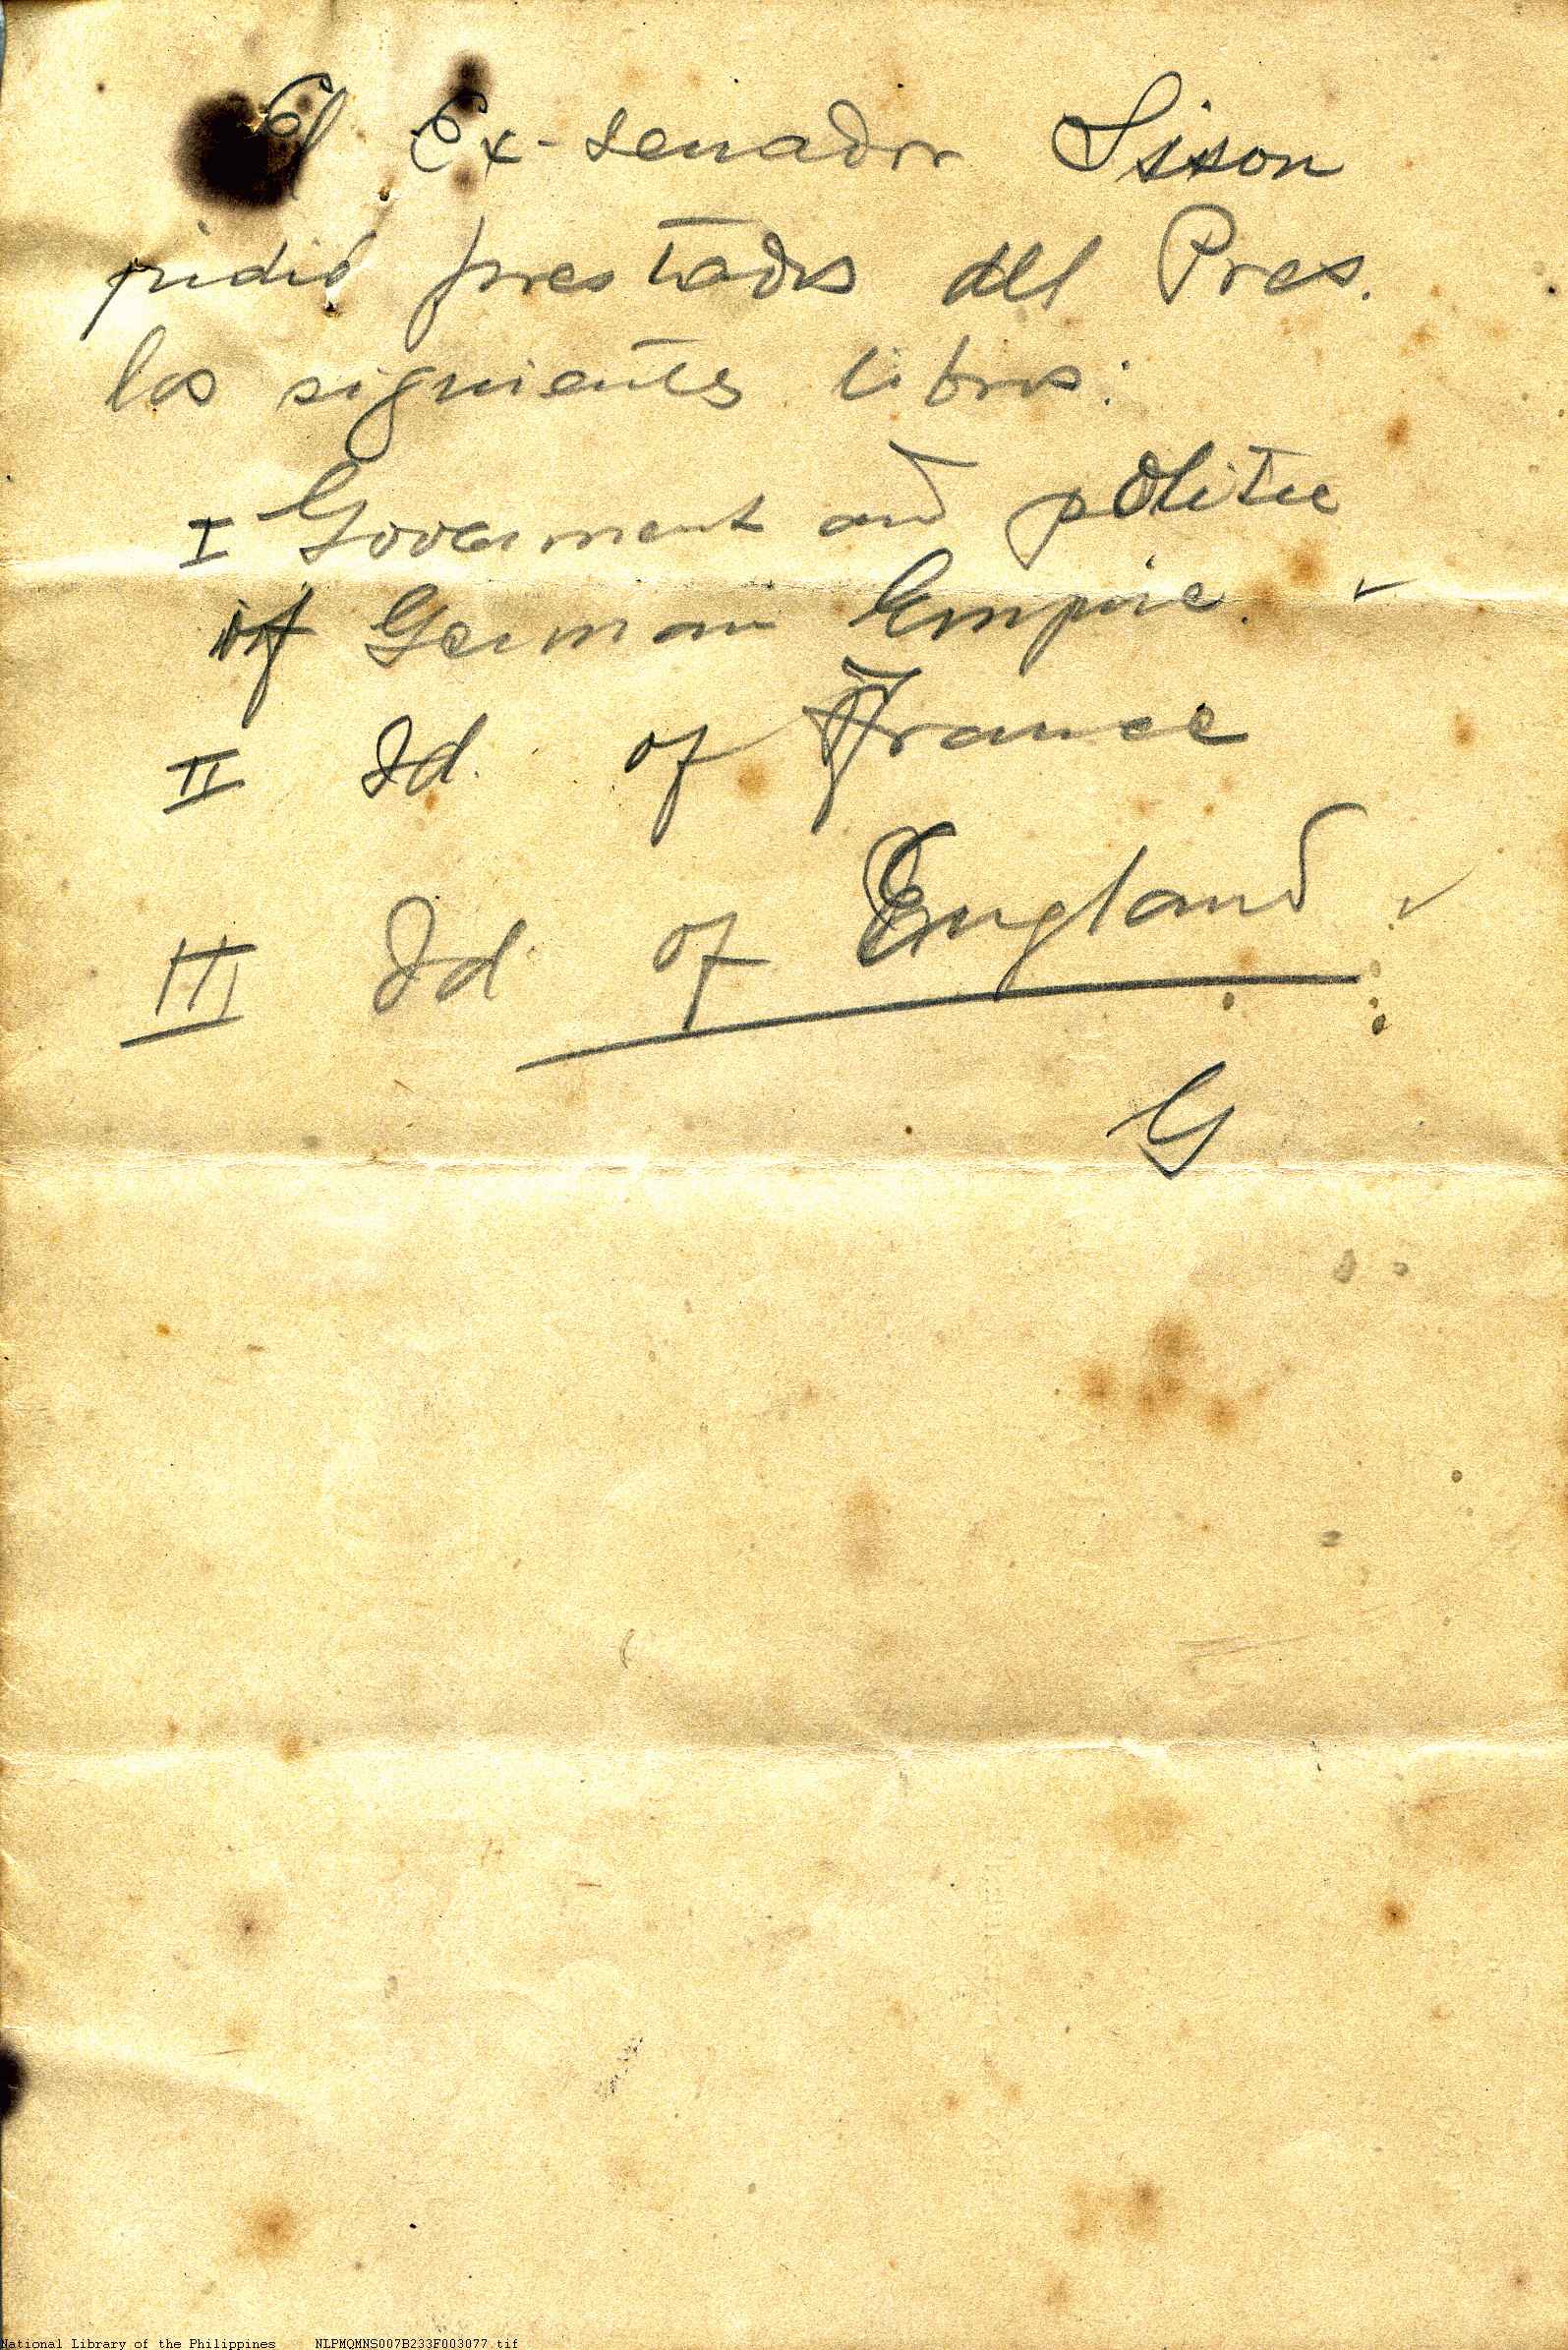 El Ex-senador Sison
pidió prestados del Pres.
los siguientes libros:
I Government and politic
of German Empire. ✓
II Id. of France
III Id. of England ✓
G
National Library of the Philippines NLPMQMNS007B233F003077.tif